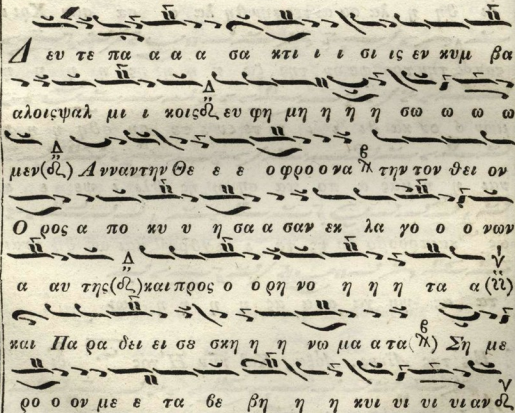 Δ ευ τε πα α α α σα κτι ι ι σι ις εν κυμ βα
αλοις ψαλ μι ι κοις ευ φη μη η η η σω ω ω ω
μεν Α νναν την Θε ε ε ε ο φρο ο να την τον θει ον
Ο ρος α πο κυ υ η σα α σαν εκ λα γο ο ο νων
α αυ της και προς ο ο ρη νο η η η τα α
και Πα ρα δει ει σε σκη η η νω μα α τα Ση με
ρο ο ον με ε τα βε βη η η κυι υι υι υι αν